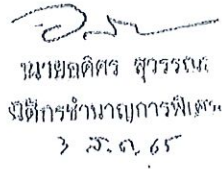 นายอดิศร สุวรรณ
นิติกรชำนาญการพิเศษ
3 ส.ค. 65